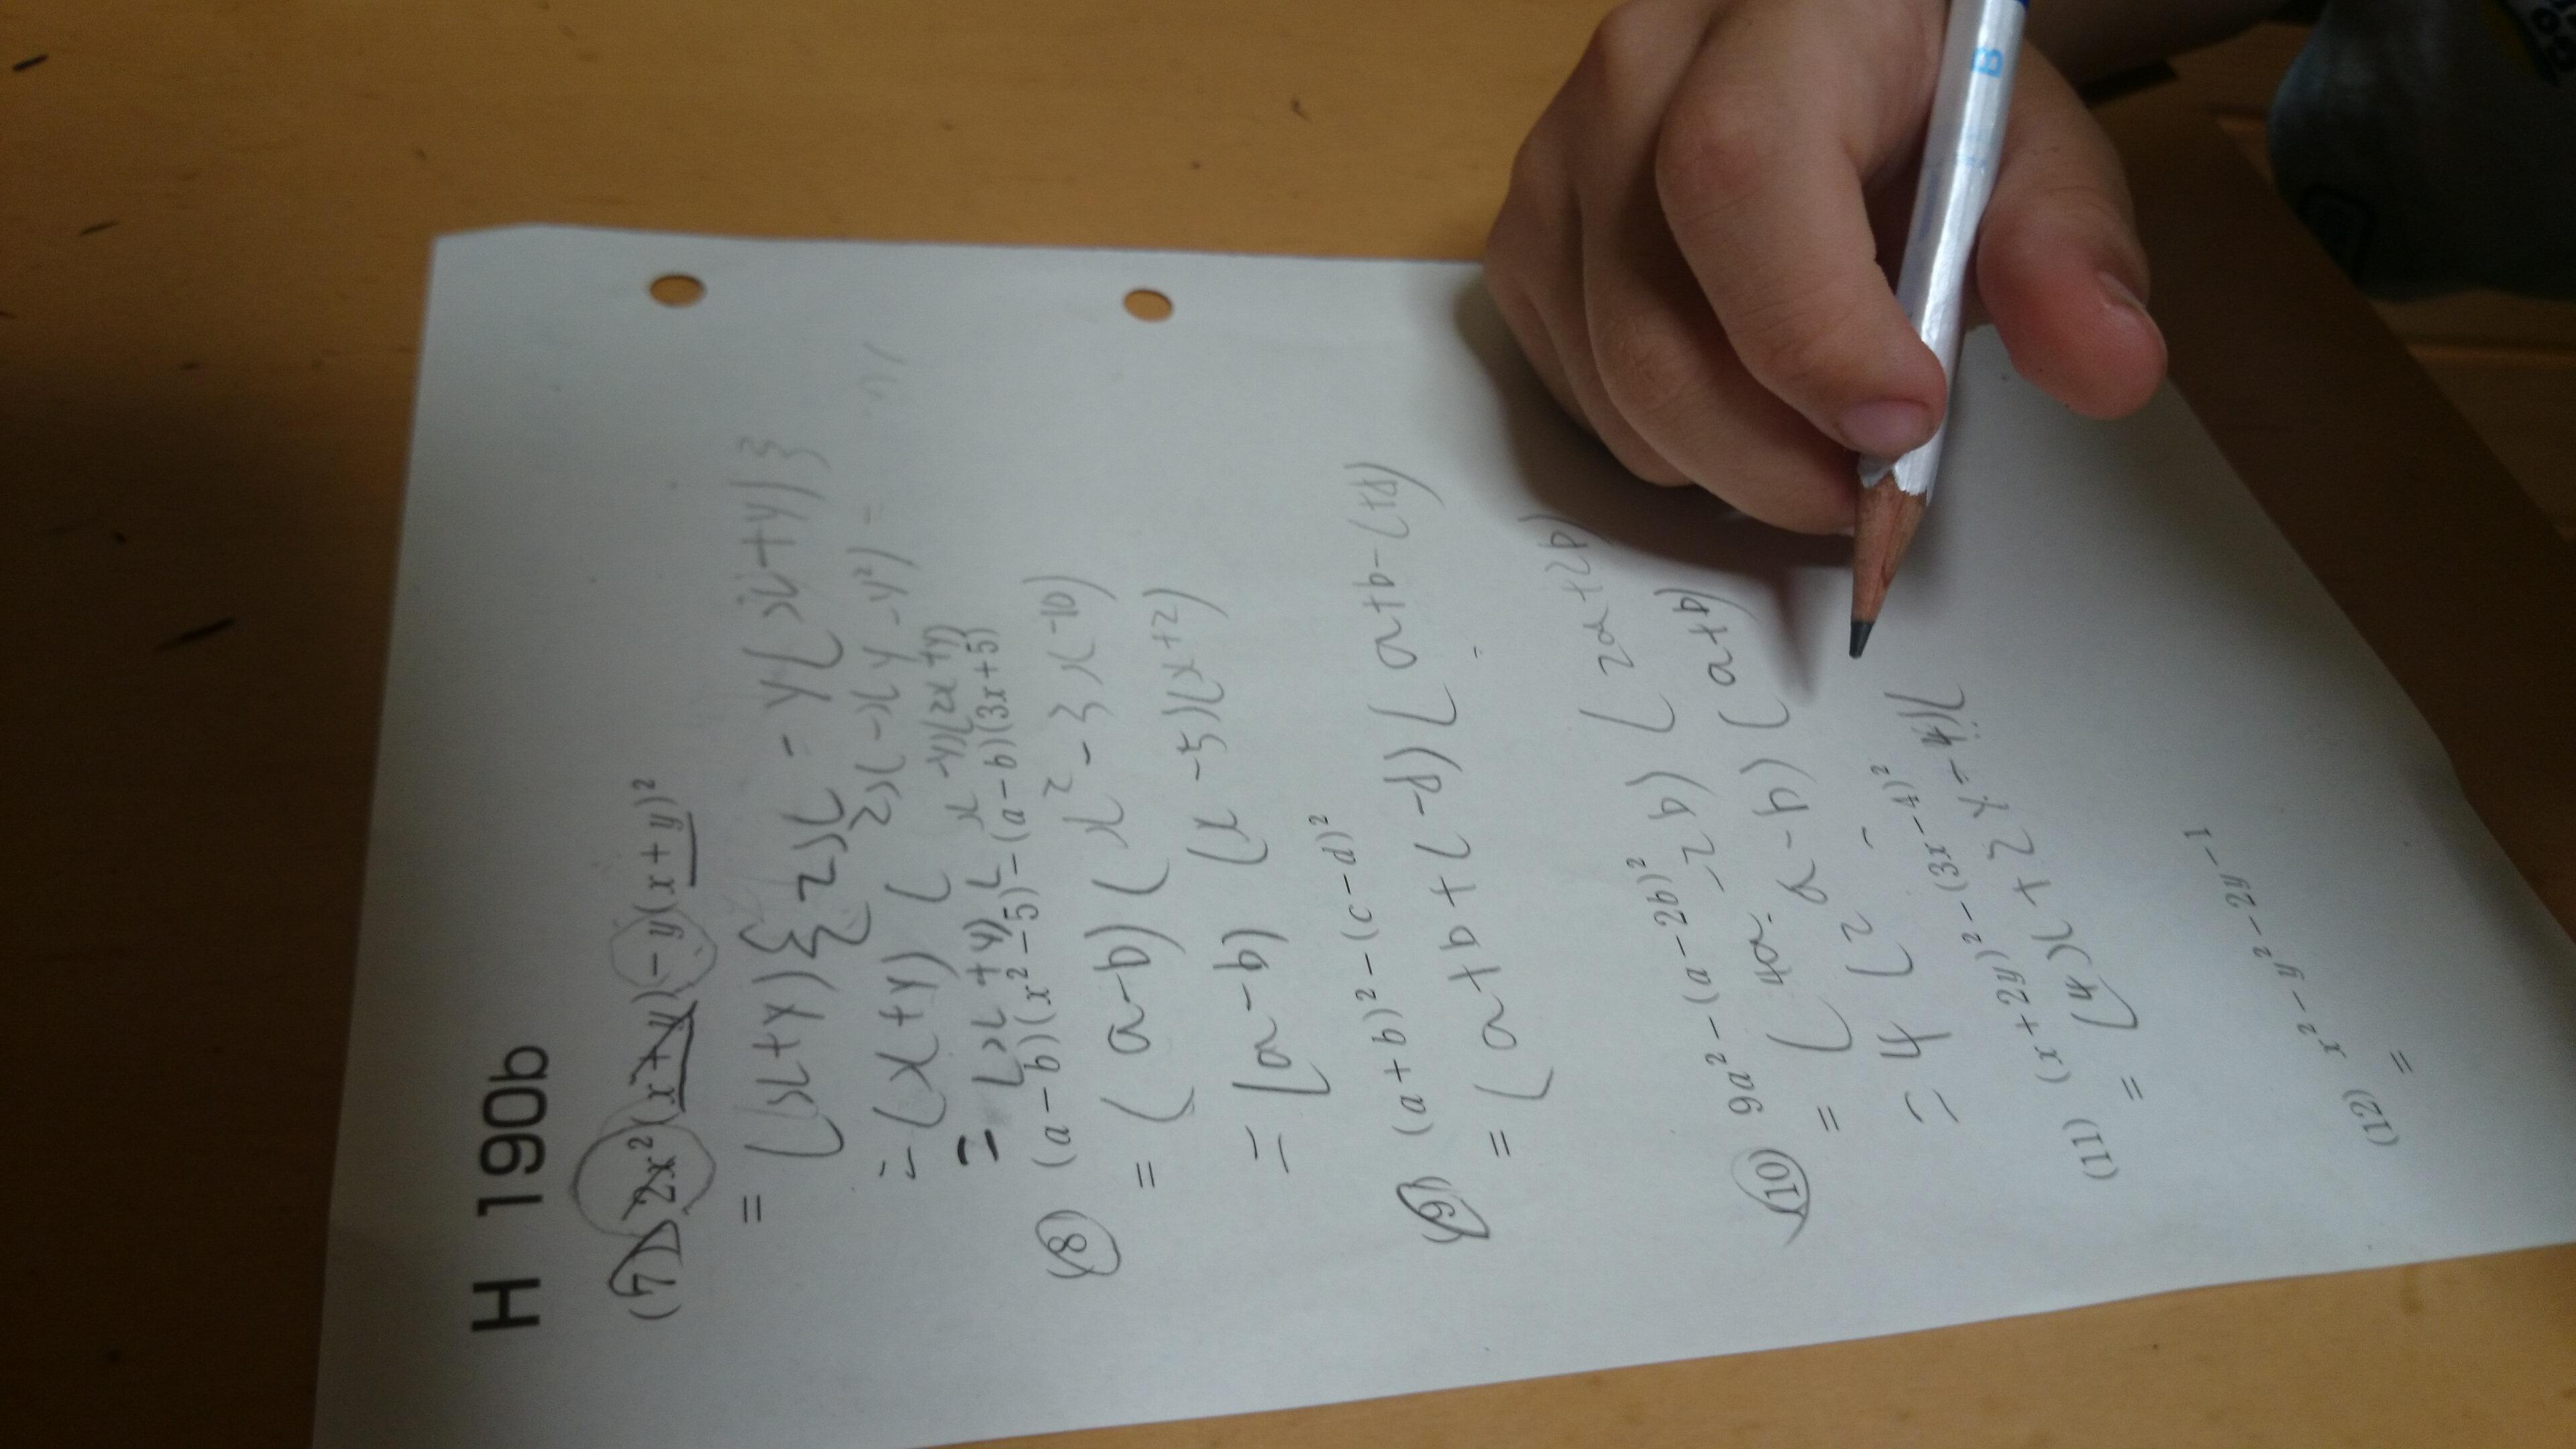 H 190b
(7) 2x²(x+y)-y(x+y)²
= (x+y){2x² - y(x+y)}
= (x+y)(2x²-xy-y²)
= (x+y)(x-y)(2x+y)
(8) (a-b)(x²-5)-(a-b)(3x+5)
= (a-b)(x²-3x-10)
= (a-b)(x-5)(x+2)
(9) (a+b)²-(c-d)²
= (a+b+c-d)(a+b-c+d)
(10) 9a²-(a-2b)²
= (4a-2b)(2a+2b)
= 4(2a-b)(a+b)
(11) (x+2y)²-(3x-4)²
= (4x+2y-4)(
(12) x²-y²-2y-1
=
B